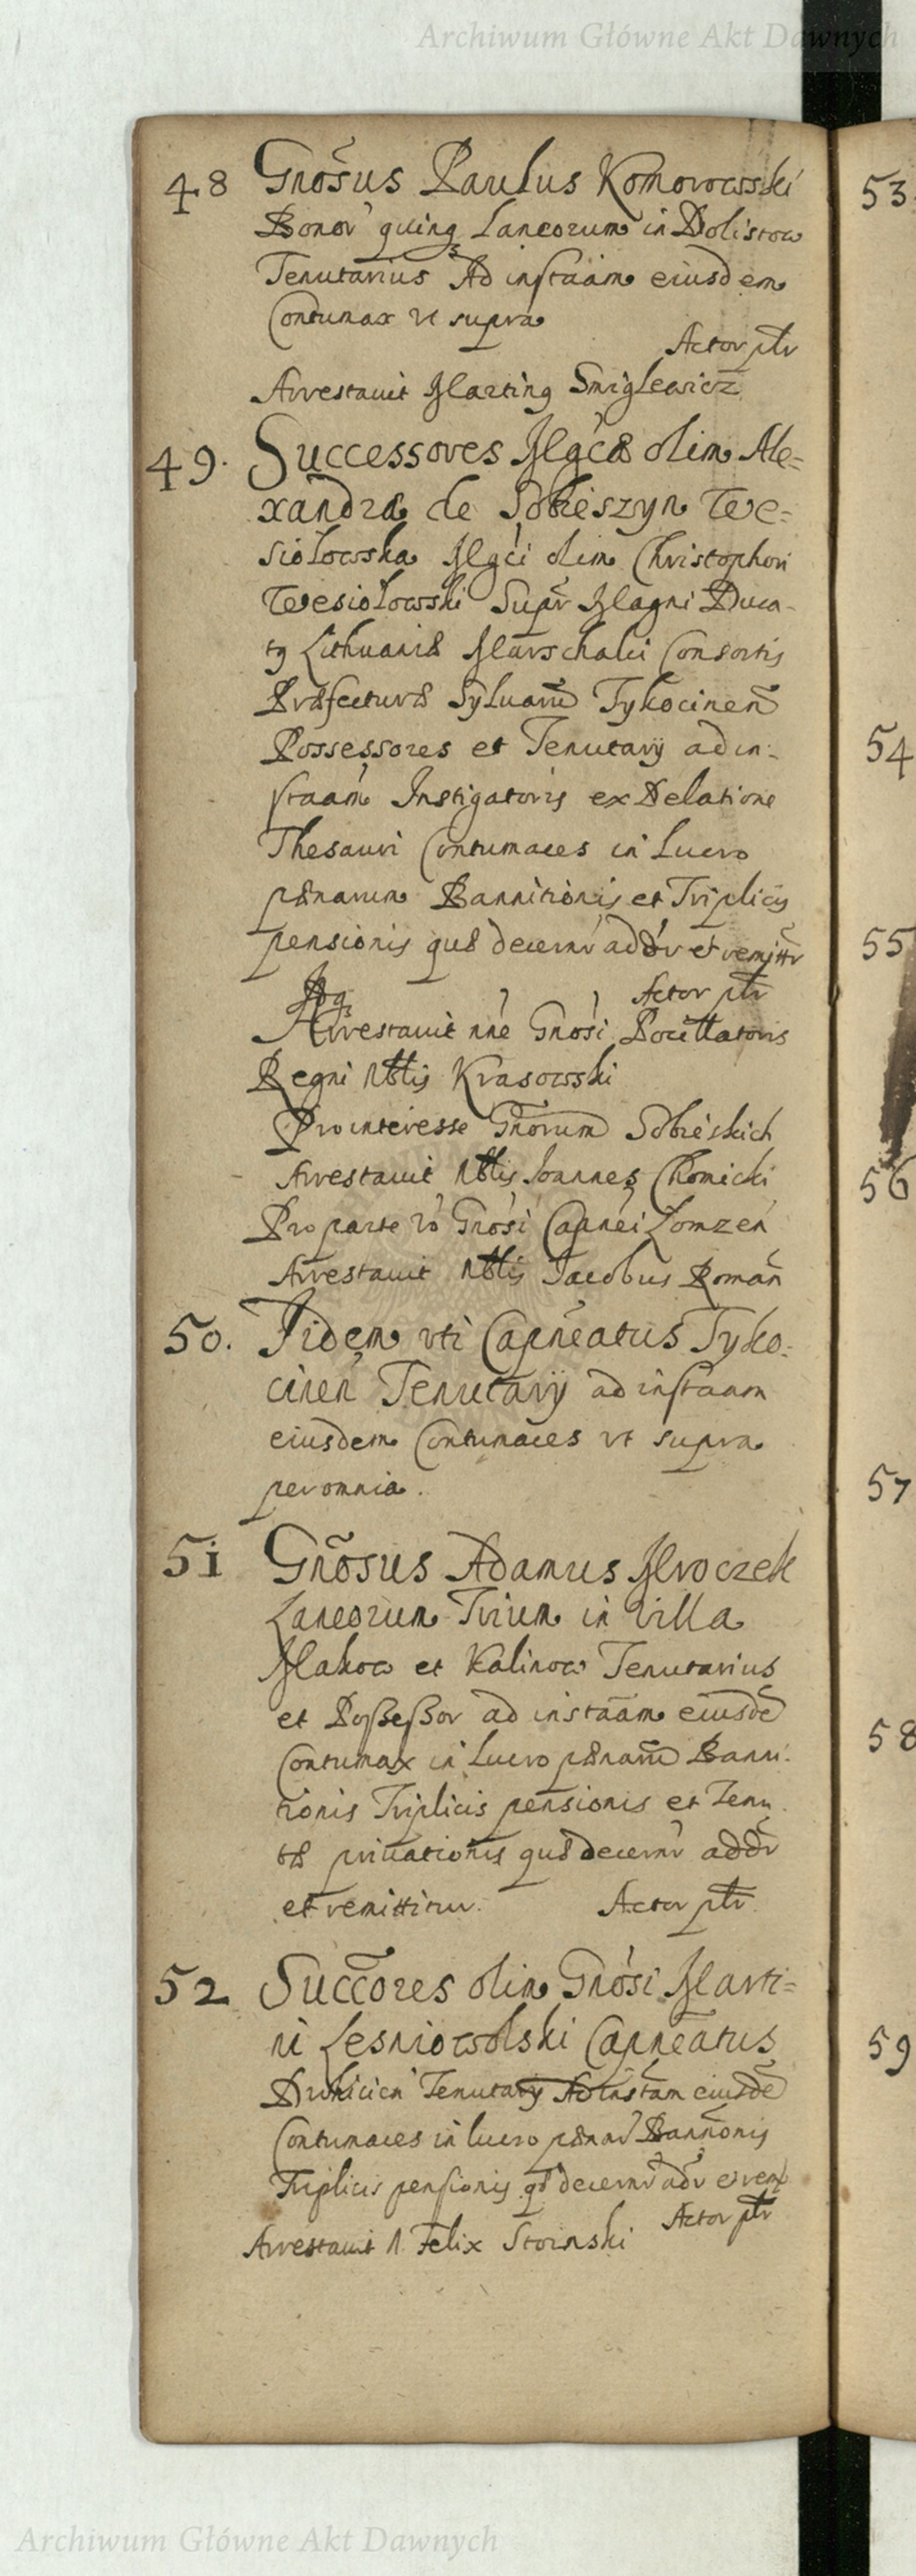 Archiwum Główne Akt Dawnych
48 Gnõsus Paulus Komorowsski
Bonor' quinq Laneorum in Dolistow
Tenutarius Ad instãam eiusdem
Contumax vt supra
Actor ptr
Arrestauit Martinq Smiglewicz
49. Successores Mgcæ olim Ale=
xandra de Sobieszyn We=
siolowska Mgci olim Christophori
Wesiolowski Supr Magni Duca-
tq Lithuaniæ Marschalci Consortis
Præfecturæ Syluarũ Tykocinen̄
Possessores et Tenutarij ad in:
staãm Instigatoris ex Delatione
Thesauri Contumaces in Lucro
pænarum Bannitionis et Triplicis
pensionis quæ decernr addr et remittr
Actor ptr
Arrestauit nne Gnosi Pocillatoris
Regni Nblis Krasowski
Pro interesse Gnorum Sobieskich
Arrestauit Nblis Ioannes Chomicki
Pro parte vo Gnosi Capnei Lomzen
Arrestauit Nblis Iacobus Roman̄
50. Iidem vti Capneatus Tyko:
cinen Tenutarij ad instanm
eiusdem Contumaces vt supra
per omnia.
51 Gnõsus Adamus Mroczek
Laneorum Trium in Villa
Makow et Kalinow Tenutarius
et Poßeßor ad instãam eiusdẽ
Contumax in Lucro pænarũ Banni:
tionis Triplicis pensionis et Tenu
tæ priuationis quæ decernr addr
et remittitur. Actor ptr
52 Succores olim Gnosi Marti=
ni Lesniowolski Capneatus
Drohicien Tenutarij Ad instam eiusdẽ
Contumaces in lucro pænar Bannonis
Triplicis pensionis qæ decernr adr et rem
Actor ptr
Arrestauit N Felix Stoinski
53
54
55
56
57
58
59
Archiwum Główne Akt Dawnych